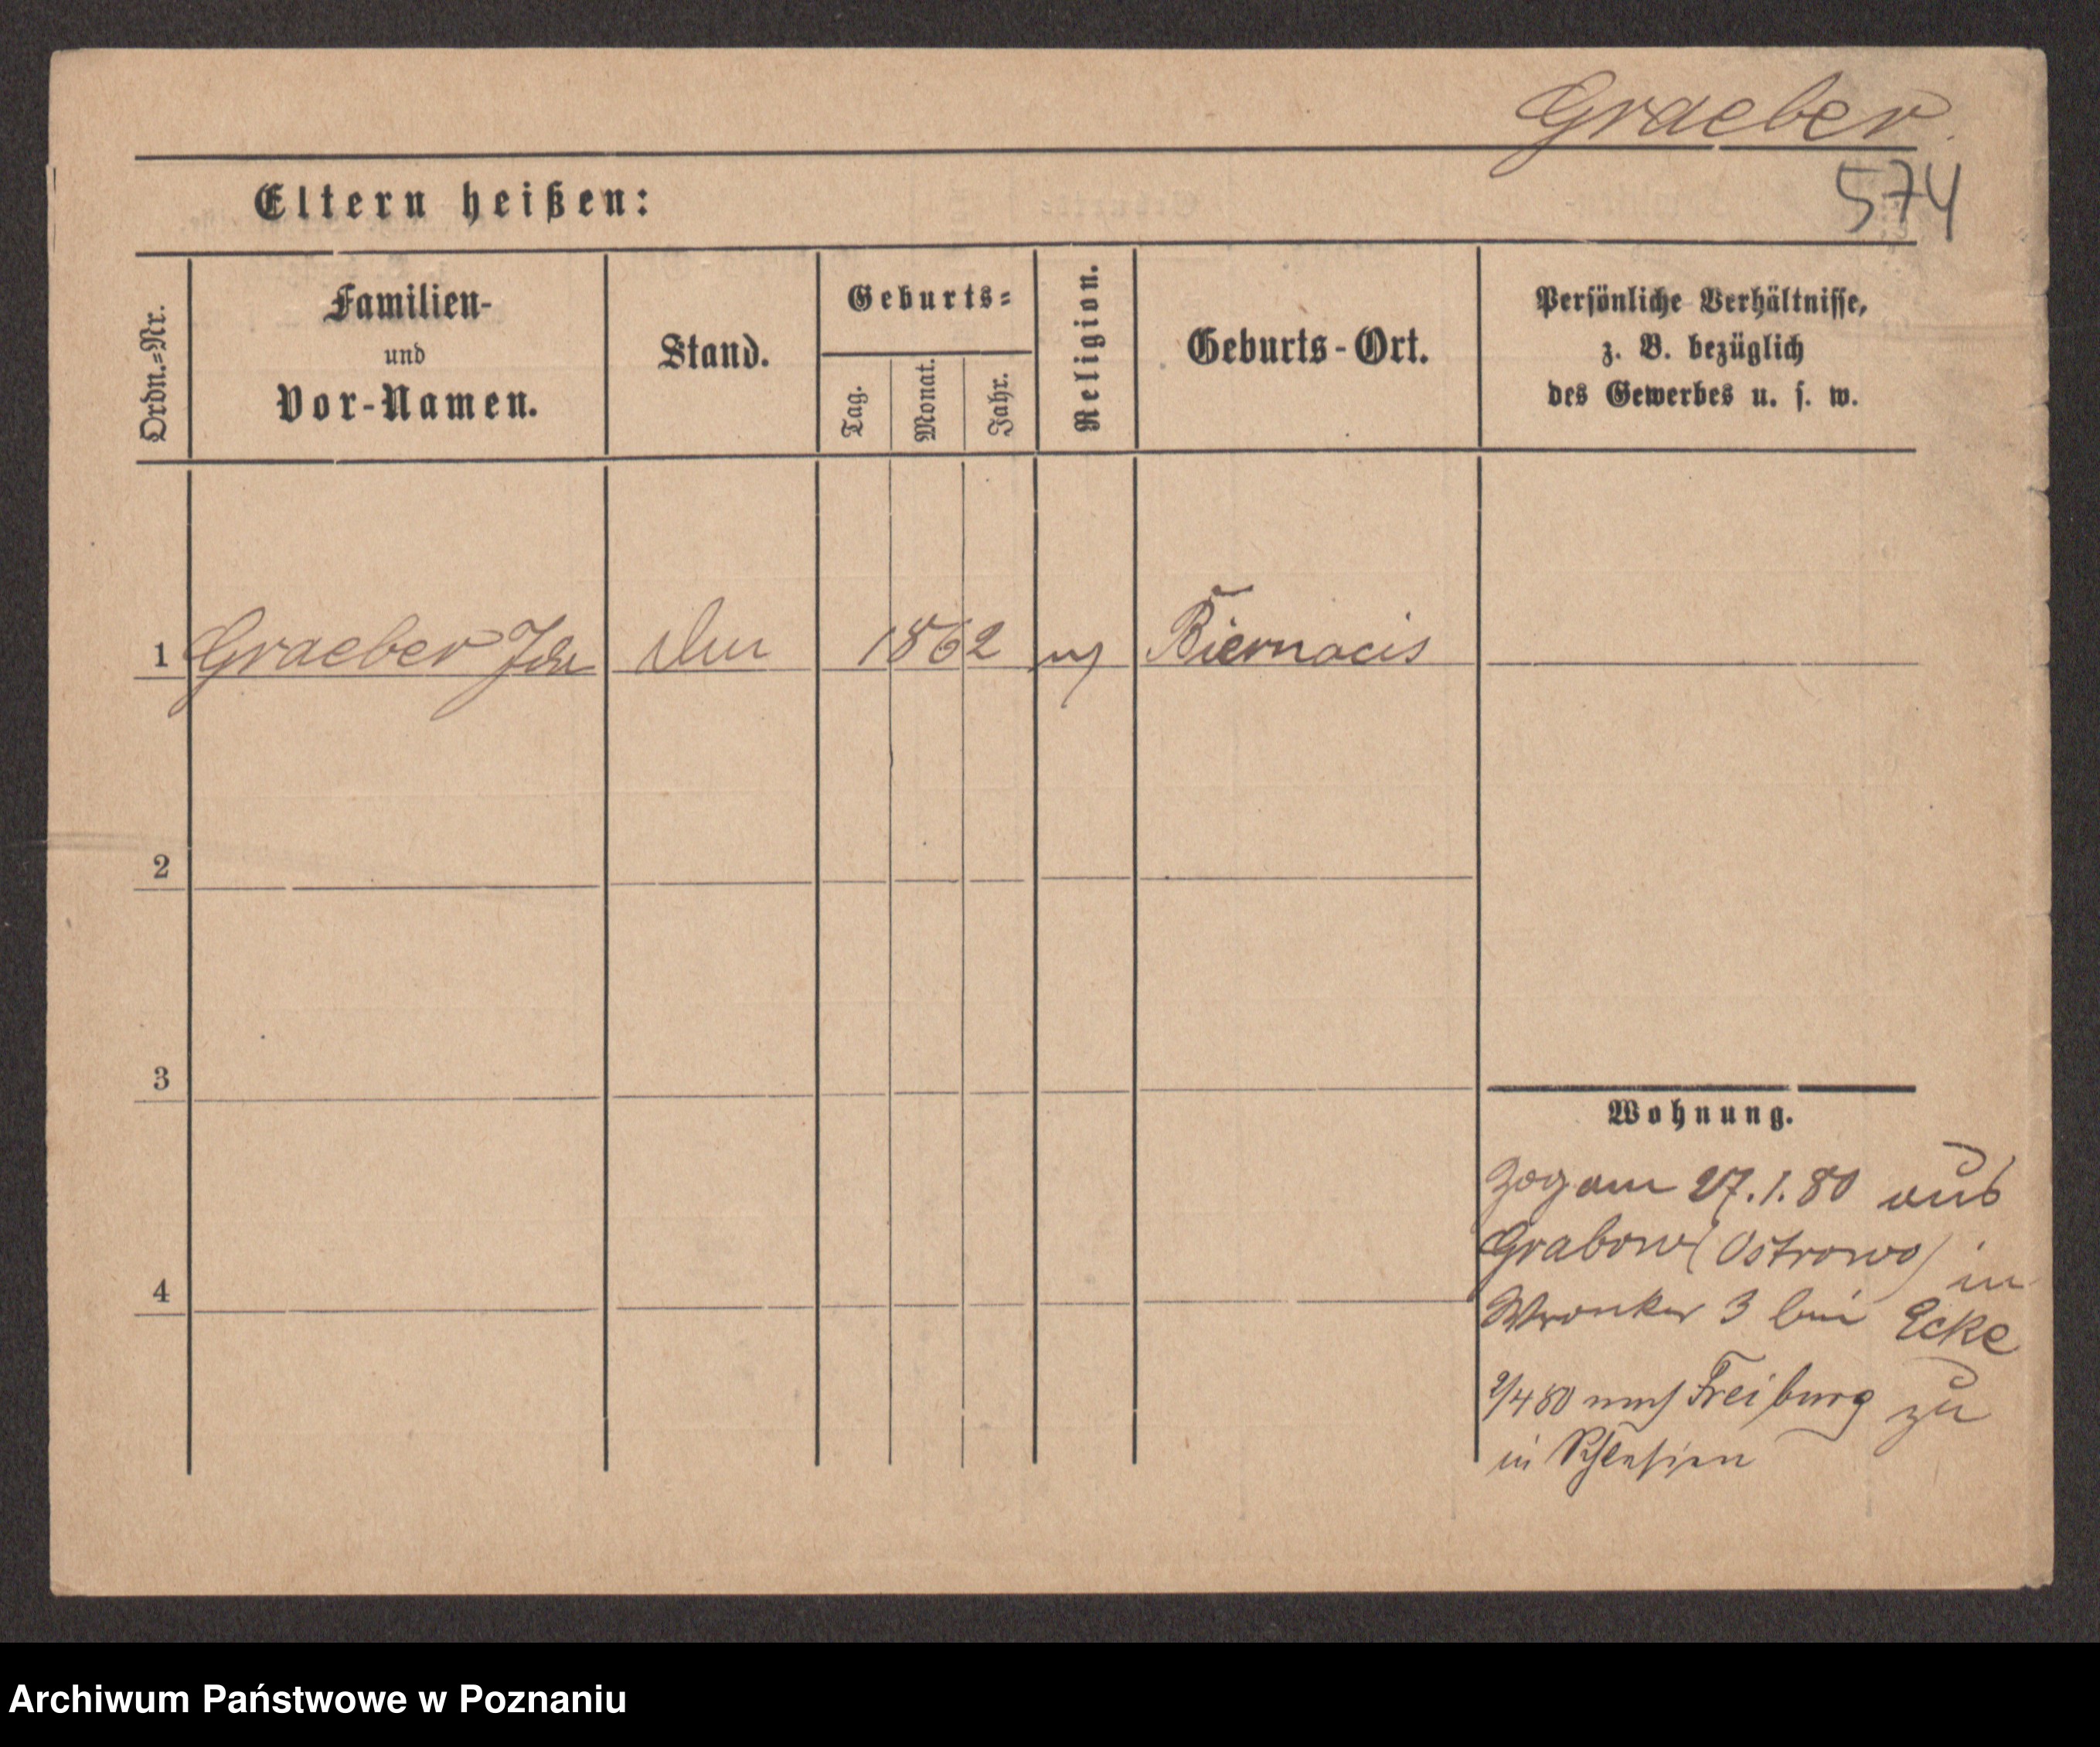 Graeber.
574
Eltern heißen:
Ordn.=Nr.
Familien-
und
Vor-Namen.
Stand.
Geburts=
Tag.
Monat.
Jahr.
Religion.
Geburts-Ort.
Persönliche Verhältnisse,
z. B. bezüglich
des Gewerbes u. s. w.
1 Graeber 1862 Biernacis
2
3
4
Wohnung.
Zog am 27.1.80 aus
Grabow (Ostrowo) in
Wronker 3 bei Ecke
2/4 80 nach Freiburg zu
in Schlesien
Archiwum Państwowe w Poznaniu